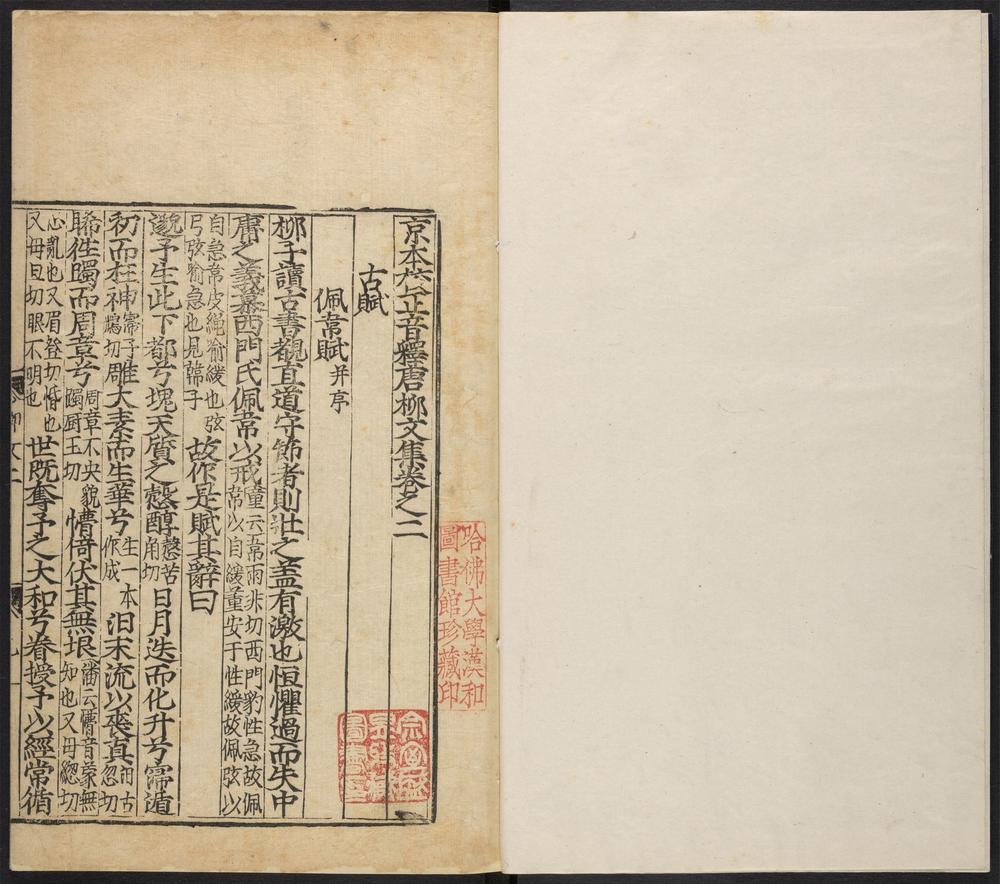 京本校正音釋唐柳文集卷之二
古賦
佩韋賦并序
柳子讀古書覩直道守節者則壯之盖有激也恒懼過而失中
庸之義慕西門氏佩韋以戒童云韋雨非切西門豹性急故佩
韋以自緩董安于性緩故佩弦以
自急韋皮繩喻緩也弦
弓弦喻急也見韓子故作是賦其辭曰
邈予生此下都兮塊天質之慤醇慤苦
角切日月迭而化升兮寖遁
初而枉神
雕大素而生華兮生一本
作成汩末流以喪真汩古
忽切
睎徃躅而周章兮周章不央貌
躅厨玉切懵倚伏其無垠潘云懵音蒙無
知也又毋緫切
心亂也又眉登切惛也
又毋亘切眼不明也世既奪予之大和兮眷授予以經常循
哈佛大學漢和
圖書館珍藏印